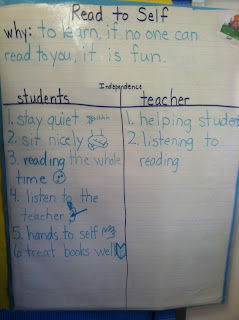 Read to Self
why: to learn, if no one can
read to you, it is fun.
Independence
students
1. stay quiet
2. sit nicely
3. reading the whole
time
4. listen to the
teacher
5. hands to self
6 treat books well
teacher
1. helping student
2. listening to
reading